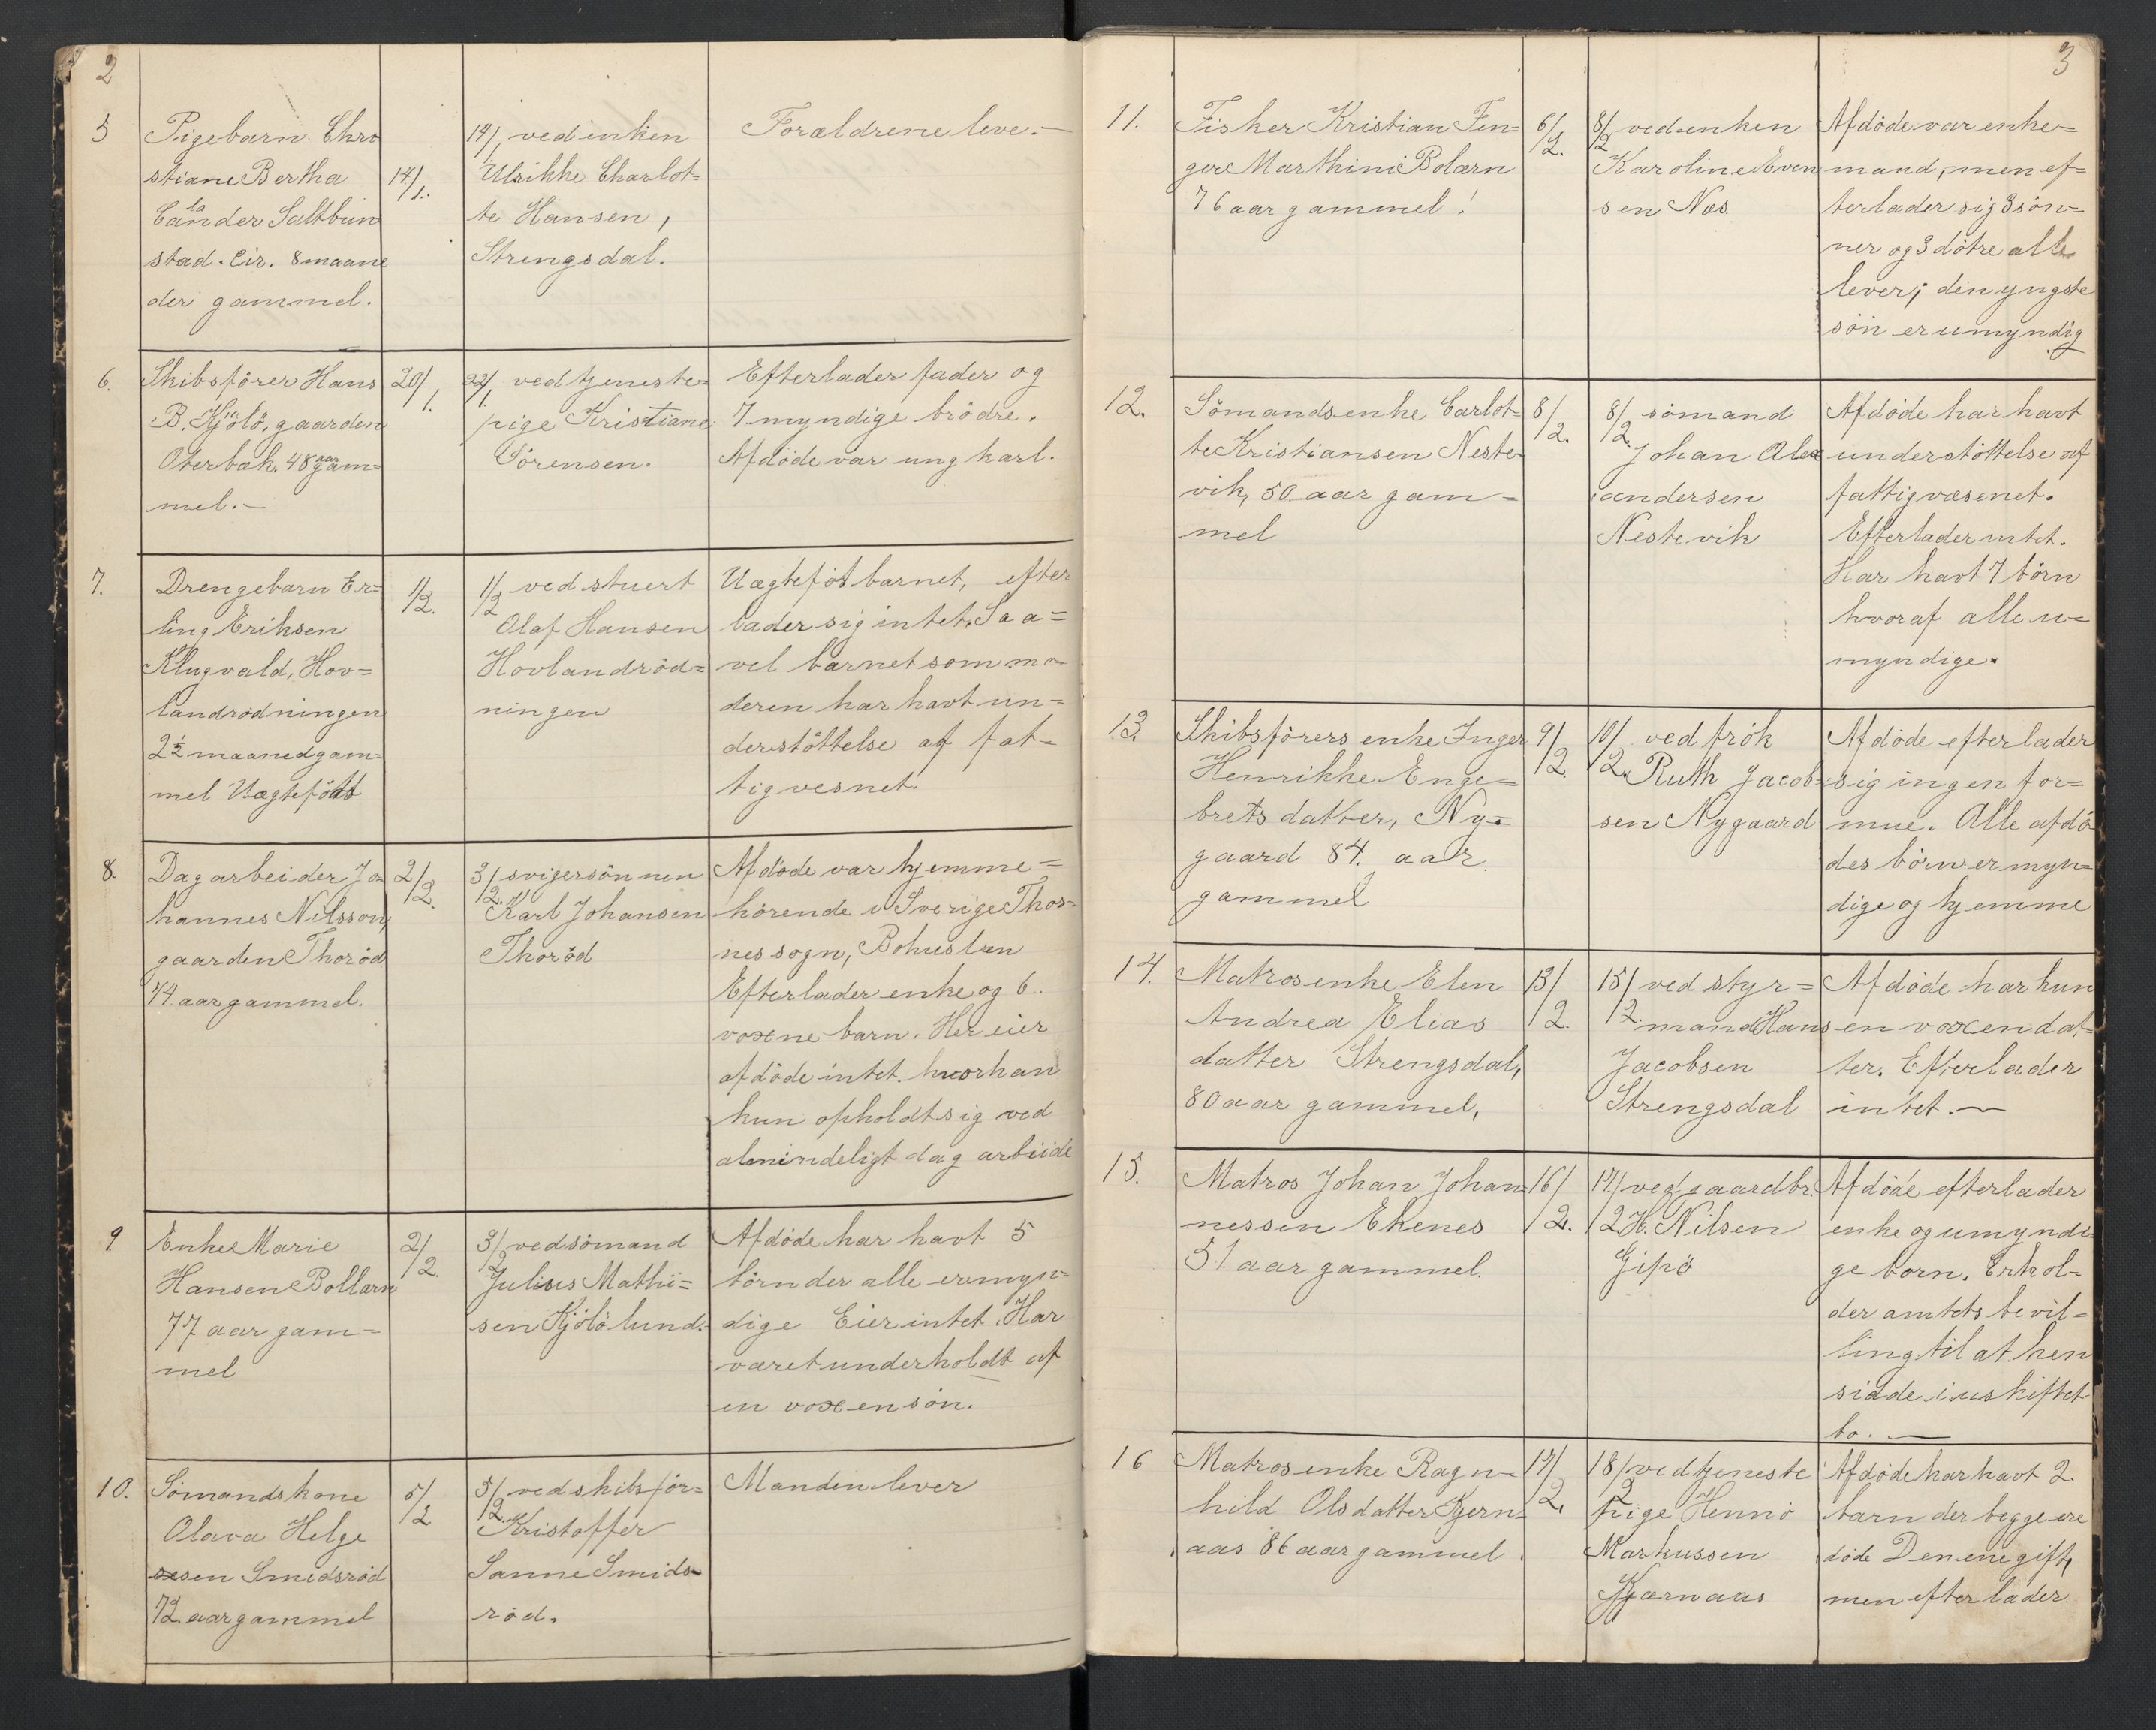 2
5
Pigebarn Chri
stiane Bertha
Calander Saltbun
stad. Cir. 8 maane
der gammel.
14/1.
14/1 ved enken
Ulrikke Charlot=
te Hansen,
Strengsdal.
Forældrene leve.—
6.
Skibsfører Hans
B. Kjölö, gaarden
Oterbæk. 48 aar gam=
mel.—
20/1.
22/1 ved tjeneste=
pige Kristiane
Sörensen.
Efterlader fader og
7 myndige brödre.
Afdöde var ung karl.
7.
Drengebarn Er=
ling Eriksen
Klugvald, Hov=
landrödningen
2½ maaned gam=
mel Uægtefödt
1/2.
1/2 ved stuert
Olaf Hansen
Hovlandröd=
ningen
Uægteföt barnet, efter
lader sig intet. Saa=
vel barnet som mo
deren har havt un=
derstöttelse af fat=
tigvesnet.
8.
Dagarbeider Jo
hannes Nilsson,
gaarden Thoröd
74 aar gammel.
2/2.
3/2. svigersönnen
Karl Johansen
Thoröd
Afdöde var hjemme=
hörende i Sverige Thos=
nes sogn, Bohuslen
Efterlader enke og 6.
voxne barn. Her eier
afdöde intet. hvor han
kun opholdt sig ved
almindeligt dag arbeide
9.
Enke Marie
Hansen Bollærn
77 aar gam=
mel
2/2.
3/2 ved sömand
Julius Mathi=
sen Kjölö lund.
Afdöde har havt 5
börn der alle er myn=
dige Eier intet. Har
været underholdt af
en voxen sön.
10.
Sömandskone
Olava Helge
sen Smidsröd
72 aar gammel
5/2
5/2. ved skibsför=
Kristoffer
Sanne Smids=
röd.
Manden lever
3
11.
Fisker Kristian Fin=
gere Marthini Bolærn
76 aar gammel!
6/2.
8/2 ved enken
Karoline Even
sen Næs.
Afdöde var enke=
mand, men ef=
terlader sig 3 sön=
ner og 3 dötre alle
lever; den yngste
sön er umyndig
12.
Sömandsenke Carlot=
te Kristiansen Neste=
vik, 50 aar gam=
mel
8/2.
8/2. sömand
Johan Alex
andersen
Nestevik
Afdöde har havt
understöttelse af
fattigvæsenet.
Efterlader intet.
Har havt 7 börn
hvoraf alle u=
myndige.
13.
Skibsförers enke Inger
Henrikke Enge=
bretsdatter, Ny=
gaard 84. aar
gammel
9/2.
10/2. ved frök
Ruth Jacob=
sen Nygaard
Afdöde efterlader
sig ingen for=
mue. Alle afdö
des börn er myn=
dige og hjemme
14.
Matrosenke Elen
Andrea Elias
datter Strengsdal,
80 aar gammel,
13/2.
15/2. ved styr=
mand Hans
Jacobsen
Strengsdal
Afdöde har kun
en voxen dat=
ter. Efterlader
intet.—
15.
Matros Johan Johan=
nessen Ekenes
51 aar gammel.
16/2.
17/2 ved gaardbr.
H. Nilsen
Gipö
Afdöde efterlader
enke og umyndi
ge born. Erhol=
der amtets bevil=
ling til at hen
sidde i uskiftet
bo.—
16
Matrosenke Ragn=
hild Olsdatter Kjern=
aas 86 aar gammel
17/2.
18/2 ved tjeneste
pige Hennö
Markussen
Kjærnaas
Afdöde har havt 2.
barn der begge ere
döde Den ene gift,
men efterlader